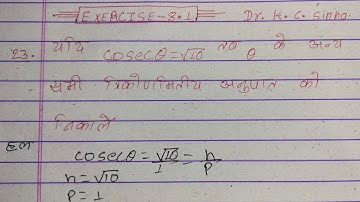 EXERCISE-8.1 Dr. K. C. Sinha
23. यदि cosecθ=√10 तो θ के अन्य
सभी त्रिकोणमितीय अनुपात को
निकालें
हल cosecθ = √10/1 = h/p
h = √10
P = 1